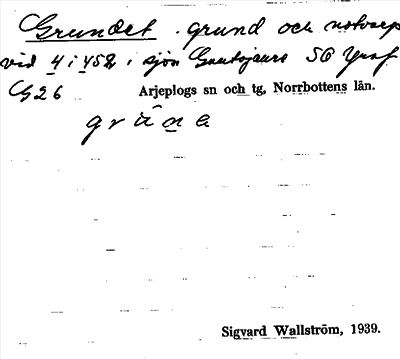 Grundet . grund och notvarp
vid 4 i 458 i sjön Gautojaure SG Yraf
G 26 Arjeplogs sn och tg, Norrbottens län.
grūne
Sigvard Wallström, 1939.